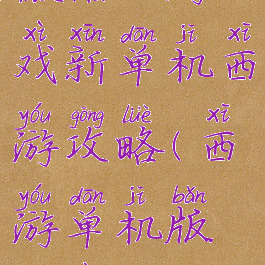 xì xīn dān jī xī
戏新单机西
yóu gōng lüè xī
游攻略(西
yóu dān jī bǎn
游单机版